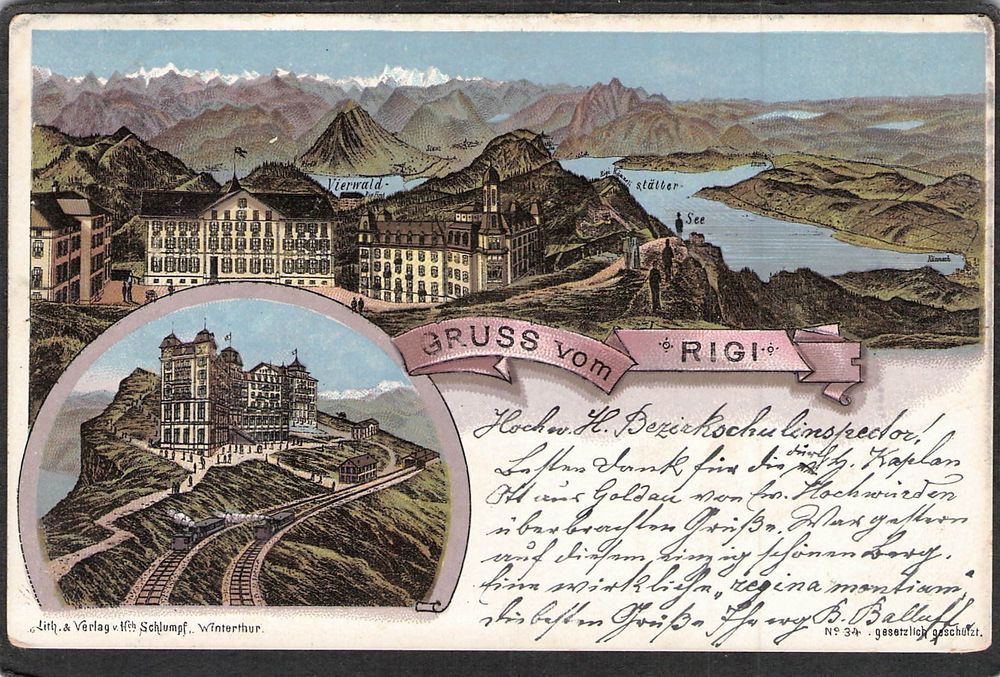 Vierwald-
stätter-
See
Küssnach
GRUSS vom RIGI
Hochw. H. Bezirkschulinspector!
Besten Dank für die durch H. Kaplan
Ott aus Goldau von Ew. Hochwürden
überbrachten Grüße. War gestern
auf diesem einzig schönen Berg.
Eine wirkliche „regina montium“
die besten Grüße Ihr erg B. Ballaff
Lith. & Verlag v. Hch Schlumpf, Winterthur.
No 34. gesetzlich geschützt.